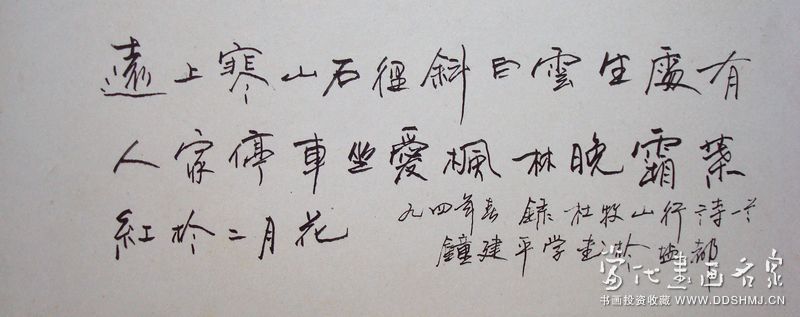 遠上寒山石徑斜白雲生處有
人家停車坐愛楓林晚霜葉
紅於二月花
九四年春 錄杜牧山行詩一首
鐘建平学書於塩都
当代書画名家
书画投资收藏 WWW.DDSHMJ.CN